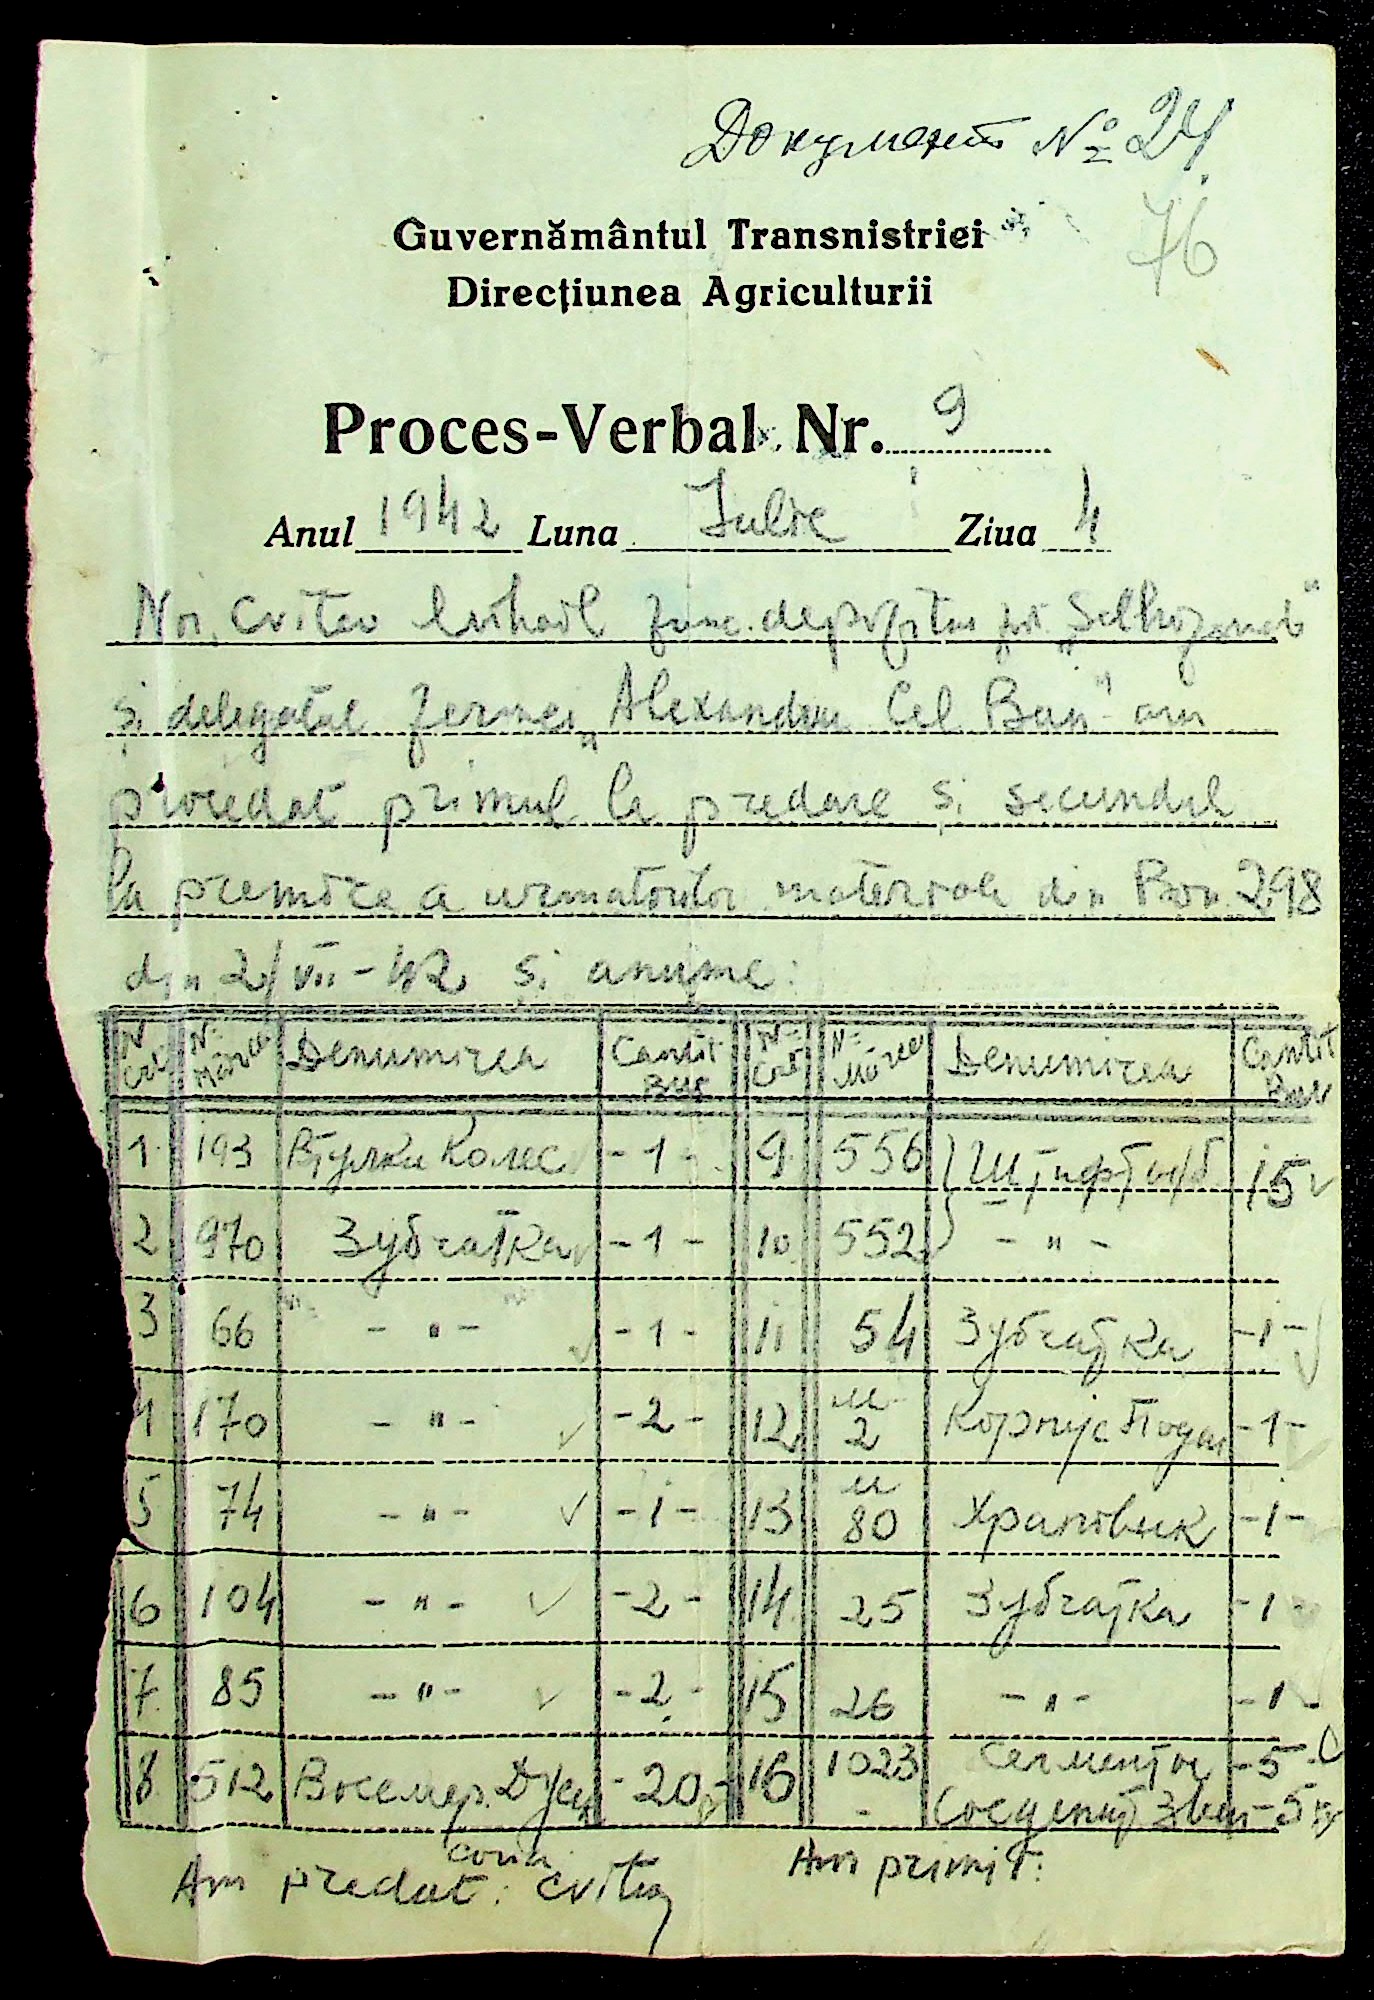 Документ № 24
76
Guvernământul Transnistriei
Direcțiunea Agriculturii
Proces-Verbal Nr. 9
Anul 1942 Luna Iulie Ziua 4
Noi, Cvitco Mihail func. depozitar
și delegatul fermei „Alexandru Cel Bun" am
procedat primul la predare și secundul
la primire a urmatorilor materiale din Bon 298
din 2/VII-42 și anume:
N Crt № Mărcei Denumirea Cantit Buc № Crt № Mărcei Denumirea Cantit Buc
1 193 Втулки Колес - 1 - 9 556 Штифт 15
2 970 Зубчатка - 1 - 10 552 - " -
3 66 - " - - 1 - 11 54 Зубчатка - 1 -
4 170 - " - - 2 - 12 м 2 Корпус Подш - 1 -
5 74 - " - - 1 - 13 м 80 Храповик - 1 -
6 104 - " - - 2 - 14 25 Зубчатка - 1 -
7 85 - " - - 2 - 15 26 - " - - 1 -
8 512 - 20 - 16 1023 Сегменты - 5 -
- Соединит Звен - 5
Am predat: Cvitco
Am primit: